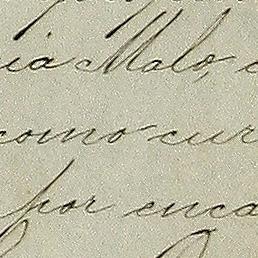 ia Malo, c
como cur
por enca